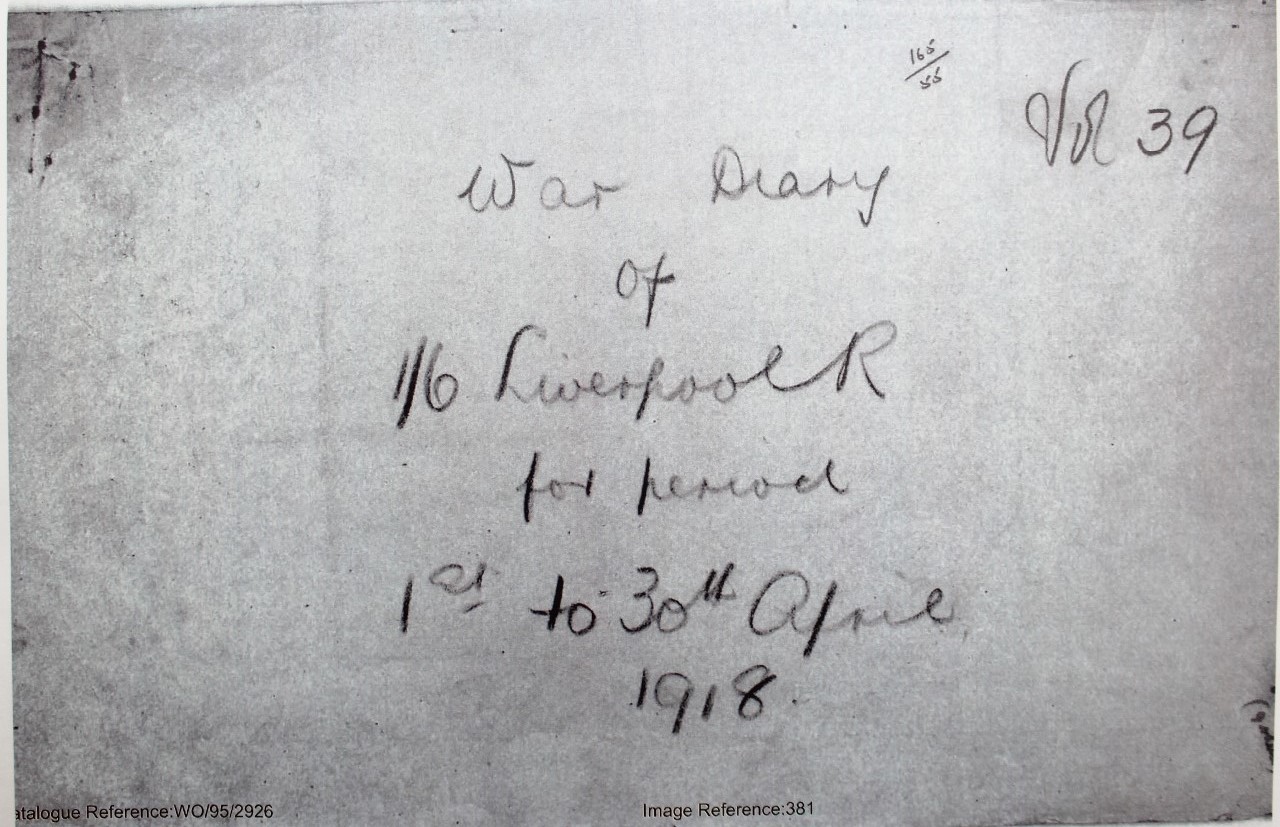 165/55
Vol 39
War Diary
of
1/6 Liverpool R
for period
1st to 30th April
1918.
atalogue Reference:WO/95/2926
Image Reference:381